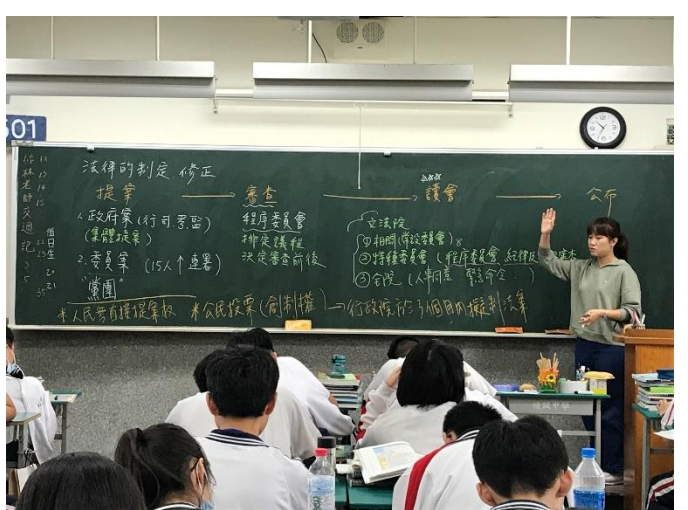 501
法律的制定、修正
提案 → 審查 → 讀會 → 公布
1. 政府案 (行司考監)
(集體提案)
2. 委員案 (15人↑連署)
"黨團"
程序委員會
排定議程
決定審查前後
立法院
①相關(常設委員會)
②特種委員會 (程序委員會, 紀律
③全院 (人事同意 緊急命令..)
*人民無直接提案權 *公民投票(創制權) → 行政院於3個月內擬法案
林老師交週記
值日生